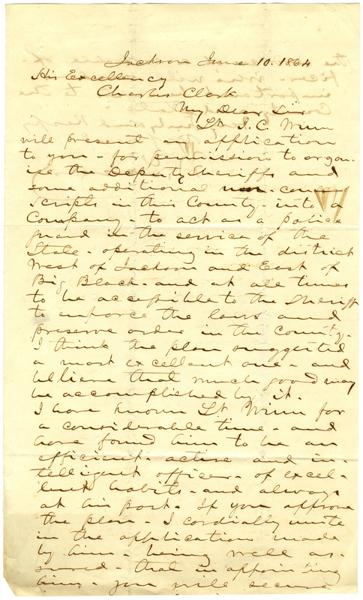 Jackson June 10. 1864
His Excellency
Charles Clark
My Dear Sir
Lt. J. C. Winn
will present an application
to you - for permission to organ-
ise the Deputy Sheriffs and
some additional non-con-
scripts in this County - into a
Company - to act as a police
guard in the service of the
State - operating in the district
West of Jackson and East of
Big Black - and at all times
to be accessible to the Sheriff
to enforce the laws and
preserve order in the County.
I think the plan suggested
a most excellent one - and
believe that much good may
be accomplished by it.
I have known Lt. Winn for
a considerable time - and
have found him to be an
efficient - active and in-
telligent officer - of excel-
lent habits - and always
at his post. If you approve
the plan - I cordially unite
in the application made
by him - being well as-
sured - that in appointing
him - you will secure